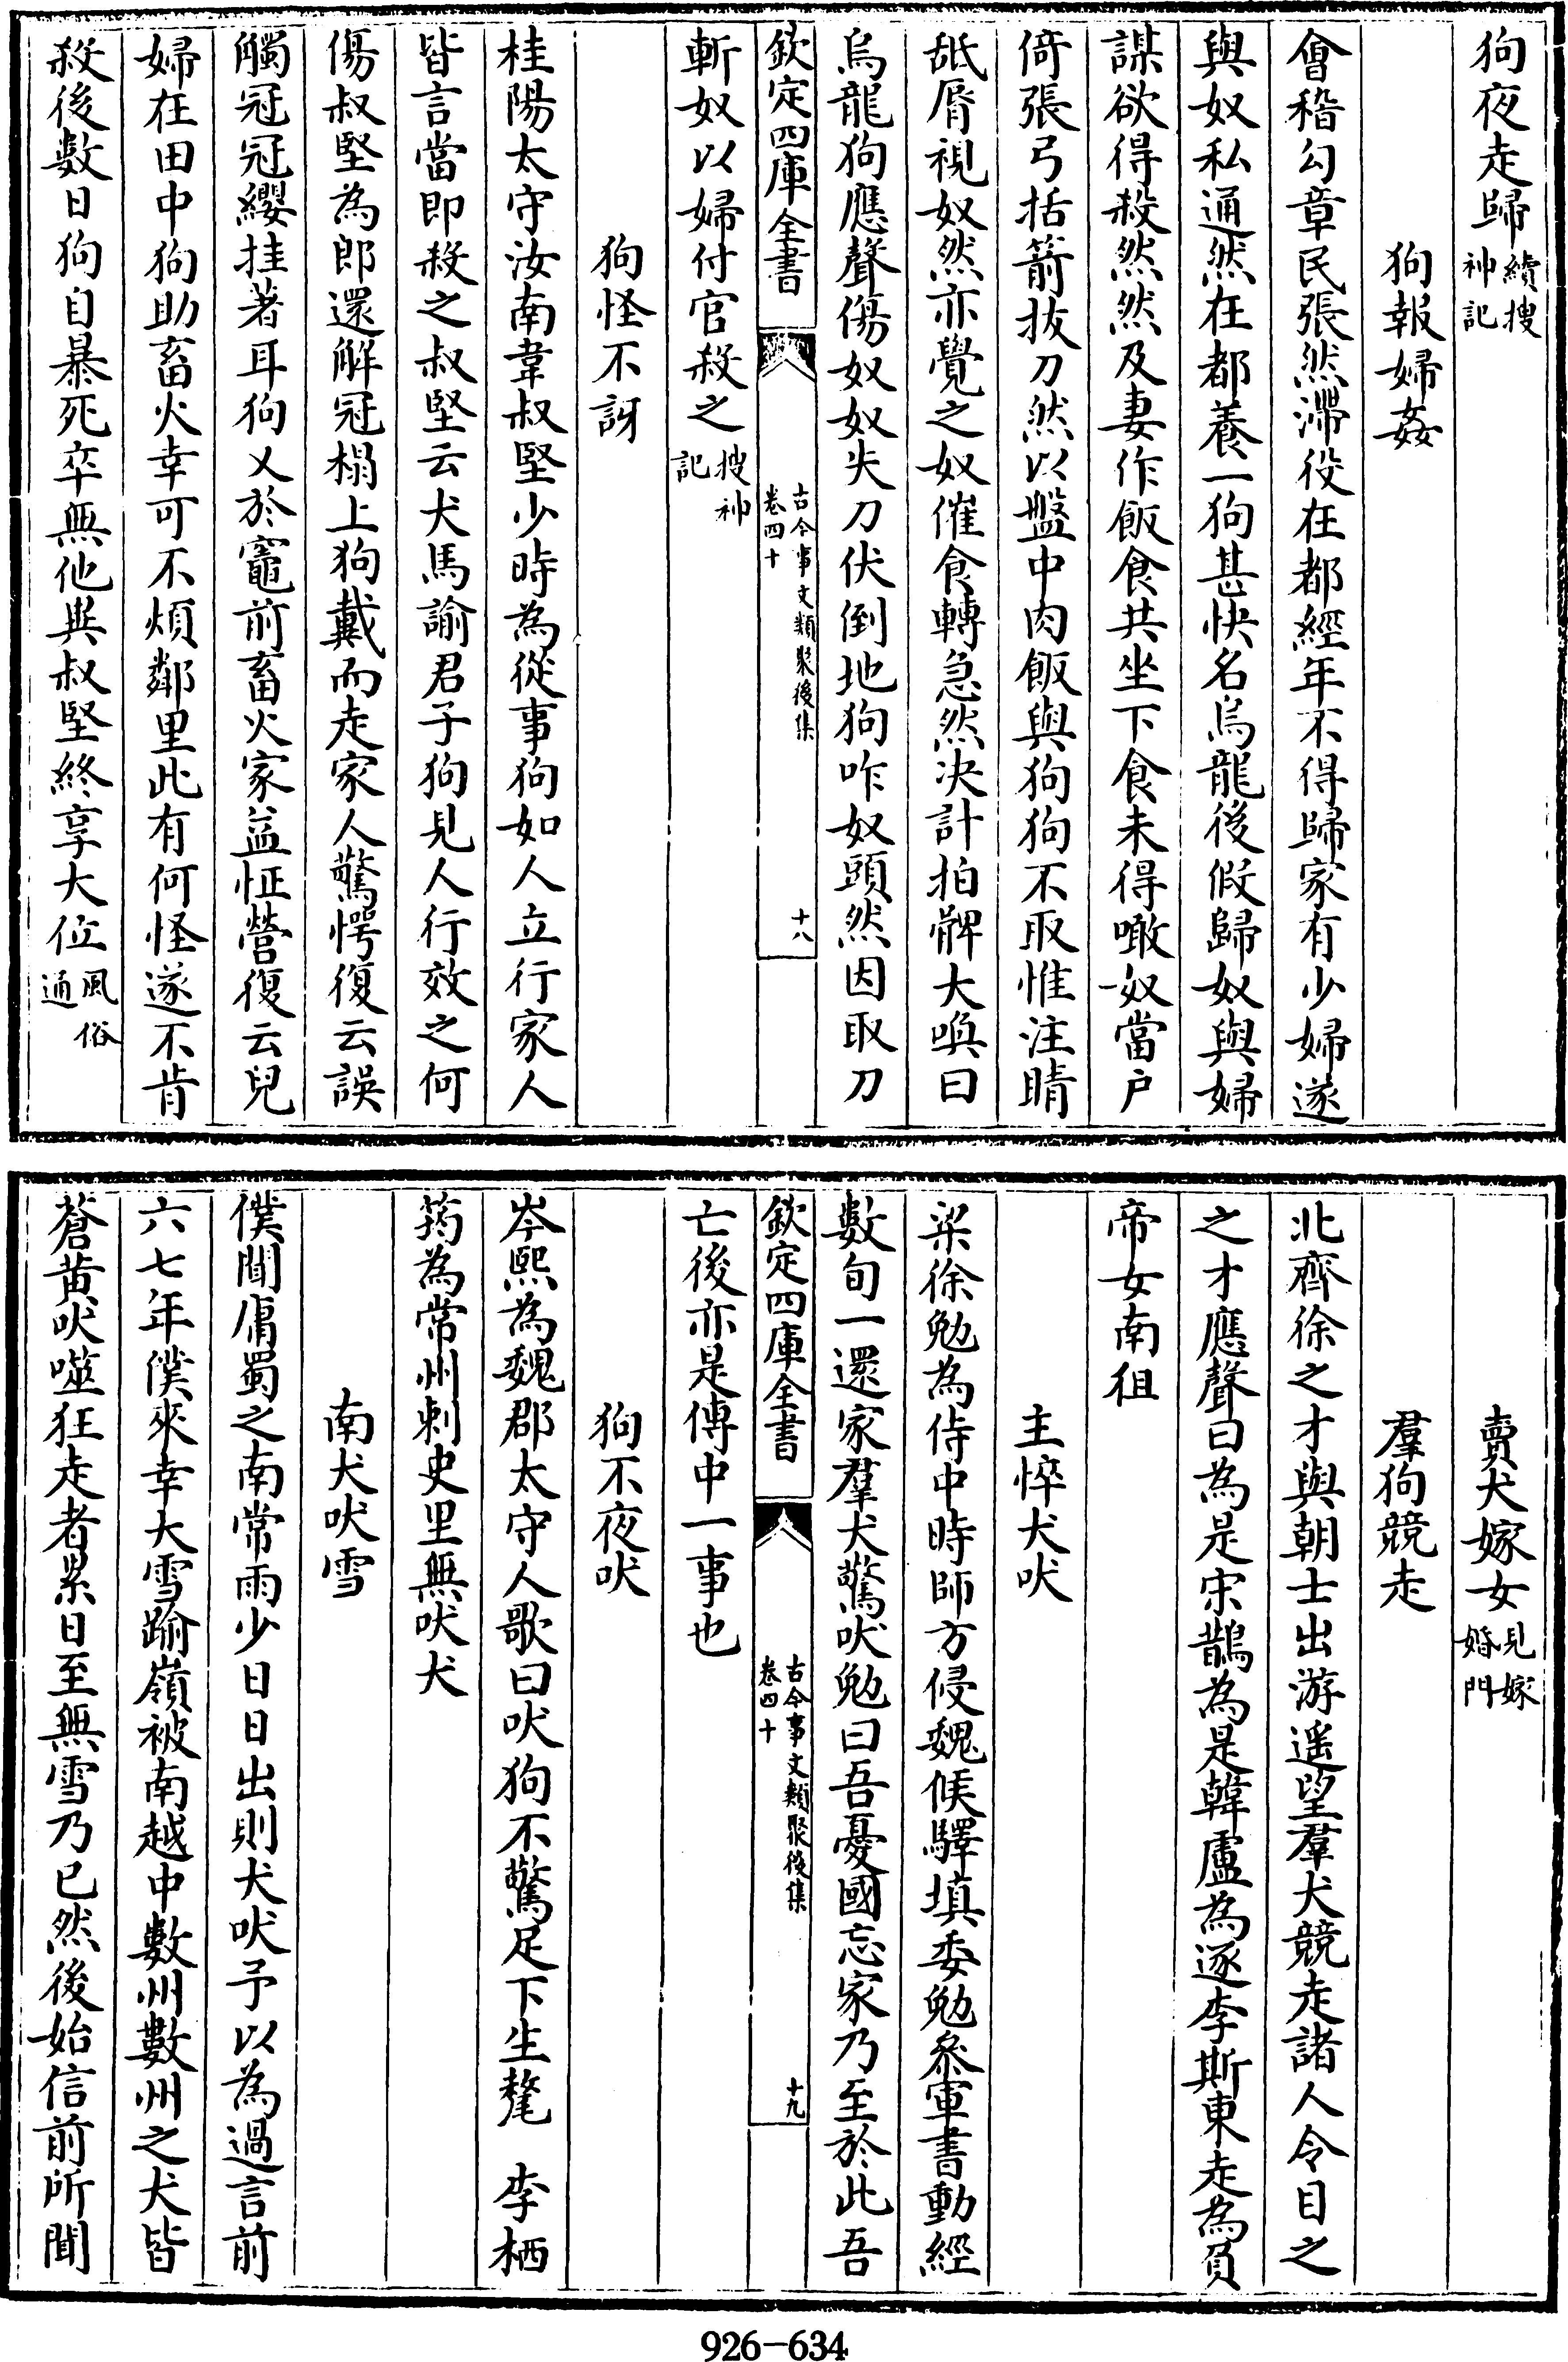 狗夜走歸續搜神記
狗報婦姦
會稽勾章民張然滯役在都經年不得歸家有少婦遂
與奴私通然在都養一狗甚快名烏龍後假歸奴與婦
謀欲得殺然然及妻作飯食共坐下食未得噉奴當户
倚張弓括箭拔刀然以盤中肉飯與狗狗不取惟注睛
舐脣視奴然亦覺之奴催食轉急然决計拍髀大喚曰
烏龍狗應聲傷奴奴失刀伏倒地狗咋奴頭然因取刀
欽定四庫全書
古今事文類聚後集
卷四十
十八
斬奴以婦付官殺之搜神記
狗怪不訝
桂陽太守汝南韋叔堅少時為從事狗如人立行家人
皆言當即殺之叔堅云犬馬諭君子狗見人行效之何
傷叔堅為郎還解冠榻上狗戴而走家人驚愕復云誤
觸冠冠纓挂著耳狗又於竈前畜火家益怔營復云兒
婦在田中狗助畜火幸可不煩鄰里此有何怪遂不肯
殺後數日狗自暴死卒無他與叔堅終享大位風俗通
賣犬嫁女見嫁婚門
羣狗競走
北齊徐之才與朝士出游遥望羣犬競走諸人令目之
之才應聲曰為是宋鵲為是韓盧為逐李斯東走為負
帝女南徂
主悴犬吠
梁徐勉為侍中時師方侵魏候驛填委勉叅軍書動經
數旬一還家羣犬驚吠勉曰吾憂國忘家乃至於此吾
欽定四庫全書
古今事文類聚後集
卷四十
十九
亡後亦是傳中一事也
狗不夜吠
岑熙為魏郡太守人歌曰吠狗不驚足下生氂　李栖
筠為常州刺史里無吠犬
南犬吠雪
僕聞庸蜀之南常雨少日日出則犬吠予以為過言前
六七年僕來幸大雪踰嶺被南越中數州數州之犬皆
蒼黃吠噬狂走者累日至無雪乃已然後始信前所聞
926-634